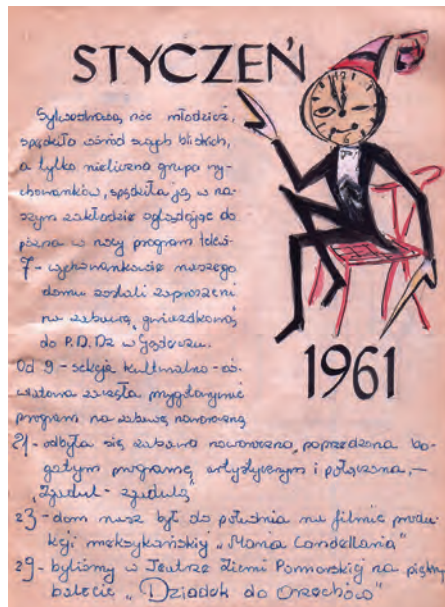 STYCZEŃ
Sylwestrową noc młodzież,
spędziła wśród swych bliskich,
a tylko nieliczna grupa wy-
chowanków, spędziła ją w na-
szym zakładzie oglądając do
późna w nocy program telew-
7- wychowankowie naszego
domu zostali zaproszeni
na zabawę gwiazdkową
do P.D.Dz w
Od 9 - sekcja kulturalno-oś-
wiatowa zaczęła przygotowywać
program na zabawę noworoczną
21- odbyła się zabawa noworoczna, poprzedzona bo-
gatym programem artystycznym i połączona, –
„Zgaduj - zgadulą
23- dom nasz był do południa na filmie produ-
kcji meksykańskiej „Maria Candellaria"
29- byliśmy w Teatrze Ziemi Pomorskiej na pięknym
balecie „Dziadek do Orzechów"
1961
12